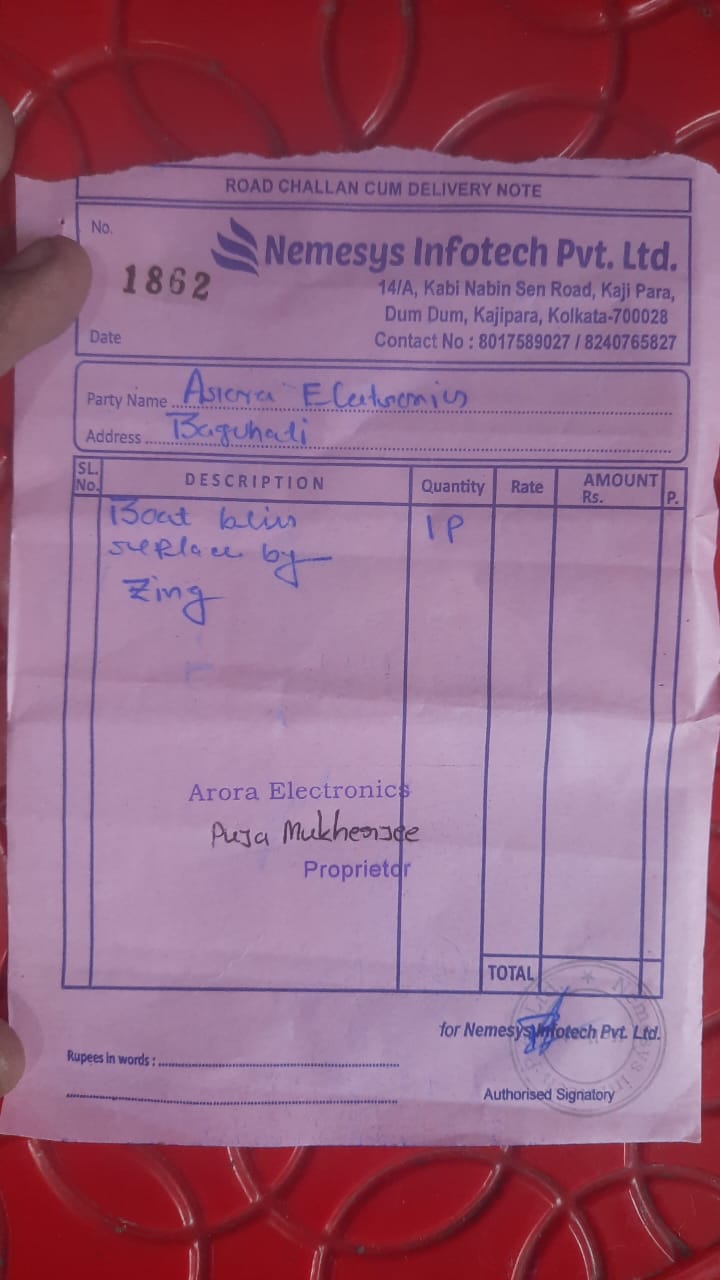 ROAD CHALLAN CUM DELIVERY NOTE
No.
1862
Nemesys Infotech Pvt. Ltd.
14/A, Kabi Nabin Sen Road, Kaji Para,
Dum Dum, Kajipara, Kolkata-700028
Contact No : 8017589027 / 8240765827
Date
Party Name Arora Electronics
Address Baguhati
SL. No. DESCRIPTION Quantity Rate AMOUNT Rs. P.
Boat bliss 1P
replace by
Zing
Arora Electronics
Puja Mukherjee
Proprietor
TOTAL
for Nemesys Infotech Pvt. Ltd.
Rupees in words :
Authorised Signatory